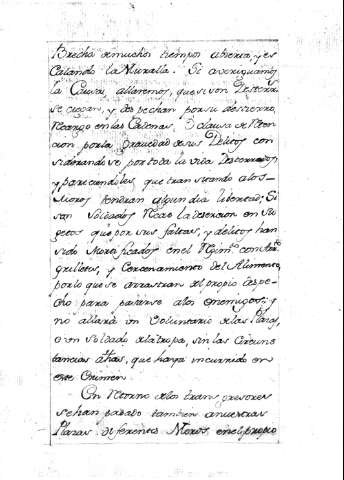 Brecha de muchos tiempos abierta, y es
Calando la Muralla. Si averiguamos
la Causa, allaremos, que si son Desterra
se ciegan, y despechan por su destierro,
Recargo en las Cadenas, o clausa de Reten
cion por la Gravedad de sus Delitos con
siderandose por toda la vida Desterrados
y pareciendoles, que transitando a los
Moros tendran algun dia libertad; Si
son Soldados Recae la desercion en Su
getos que por sus faltas, y delitos han
sido Mortificados en el Regim.to con
grilletes, y Cercenamiento del Alimento,
por lo que se arrastran del propio Despe
cho para pasarse a los enemigos; y
no allará un Voluntario de las Plazas,
o un Soldado de la tropa, sin las Circuns
tancias dhas, que haya incurrido en
este Crimen.
En Retorno de los transgresores
se han pasado tambien a nuestras
Plazas diferentes Moros, en el propio